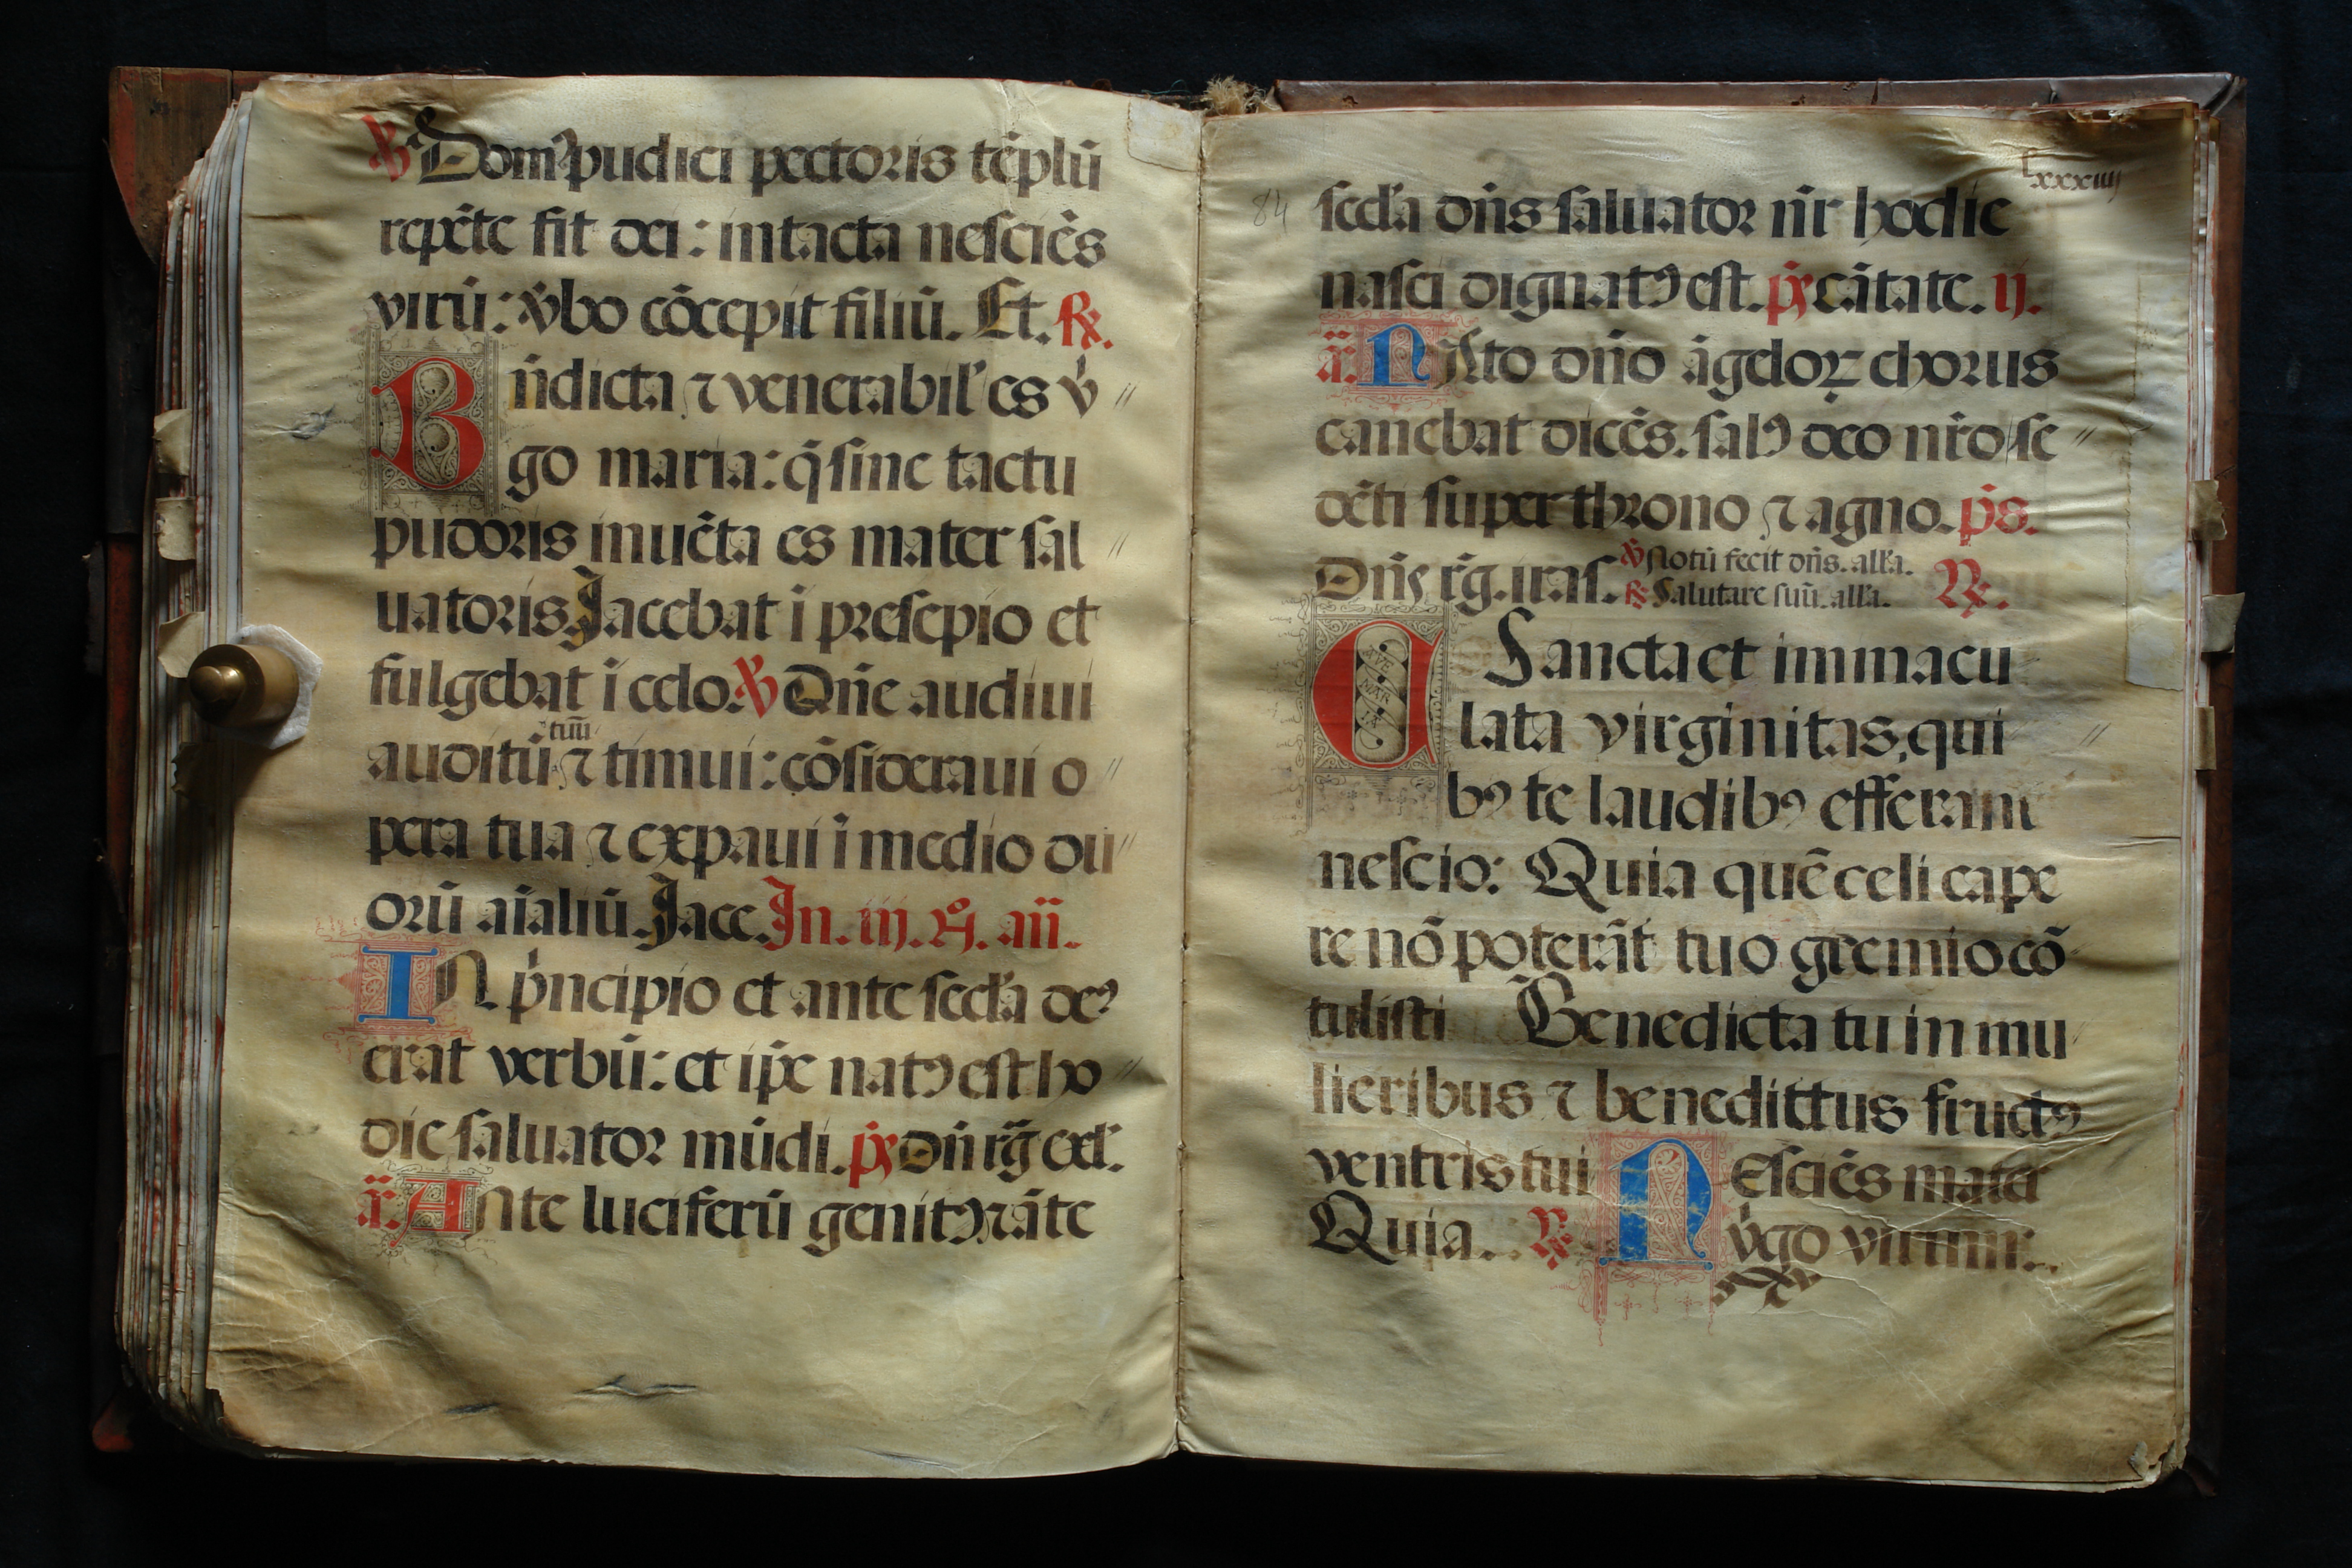 ℣ Domꝰ pudici pectoris tēplū
repēte fit dei: intacta nesciēs
virū: v̓bo cōcepit filiū. Et. ℟.
Bn̄dicta ⁊ venerabil' es v̓
go maria: q̄ sine tactu
pudoris inuēta es mater sal
uatoris. Jacebat i presepio et
fulgebat i celo. ℣ Dn̄e audiui
auditū tuū ⁊ timui: cōsideraui o
pera tua ⁊ expaui ī medio du
orū aīaliū. Jace. In. iij. N̊. añ.
IN p̓ncipio et ante secl'a deꝰ
erat verbū: et ip̄e natꝰ est ho
die saluator mūdi. p̄s Dn̄ rḡ exl'.
ā. Ante luciferū genitꝰ ⁊ āte
Lxxxiiij
84
secl'a dn̄s saluator nr̄ hodie
nasci dignatꝰ est. p̄s cātate. ij.
ā. NAto dn̄o āgeloꝝ chorus
canebat dicēs. salꝰ deo nr̄o se
dēti super throno ⁊ agno. p̄s.
Dn̄s rḡ. iras. ℣ Notū fecit dn̄s. all'a.
℟ Salutare suū. all'a. ℟.
O Sancta et immacu
lata virginitas, qui
bꝰ te laudibꝰ efferam
nescio: Quia quē celi cape
re nō poterāt tuo gremio cō
tulisti ℣ Benedicta tu in mu
lieribus ⁊ benedittus fructꝰ
ventris tui
Quia. ℟. NEsciēs mater
v̓go virum:
AVE
MAR
IA